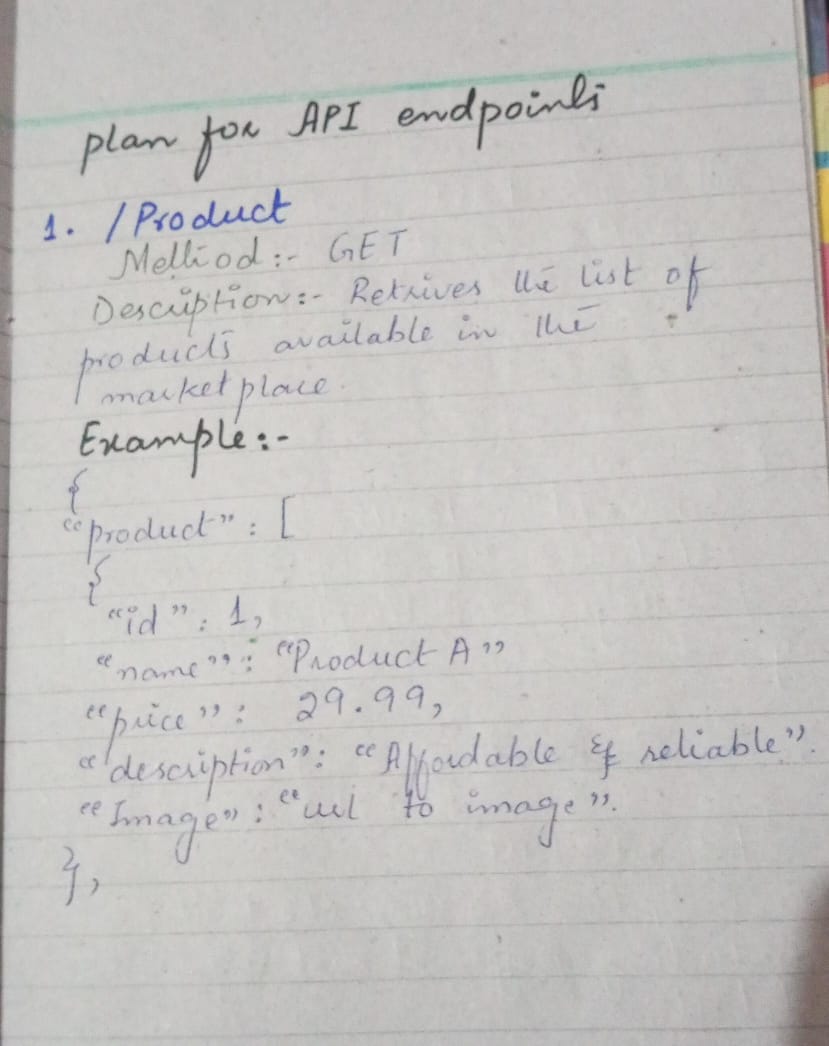 plan for API endpoints
1. /Product
Method :- GET
Description :- Retrives the list of
products available in the
marketplace.
Example :-
{
"product" : [
{
"id" : 1,
"name" : "Product A"
"price" : 29.99,
"description" : "Affordable & reliable".
"Image" : "url to image".
},